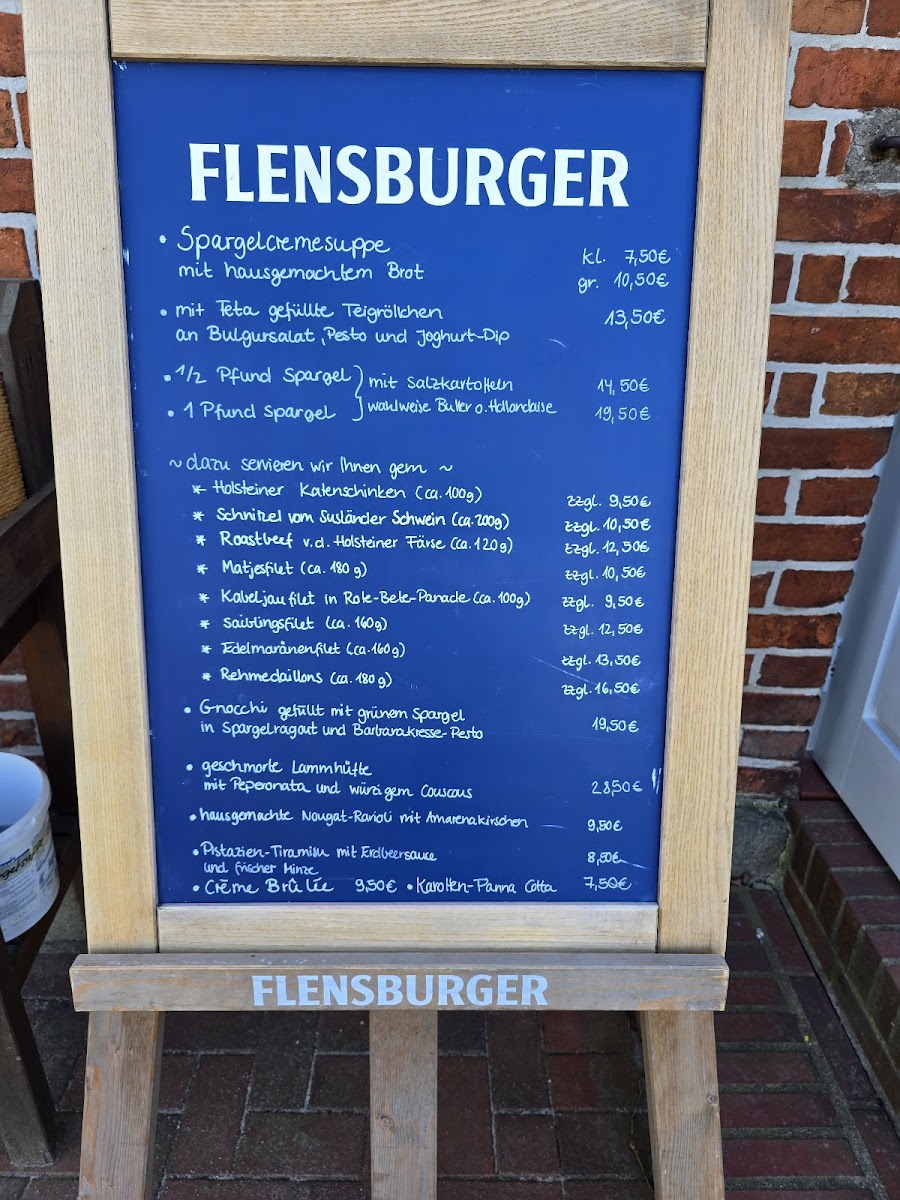 FLENSBURGER
• Spargelcremesuppe kl. 7,50€
mit hausgemachtem Brot gr. 10,50€
• mit Feta gefüllte Teigröllchen 13,50€
an Bulgursalat, Pesto und Joghurt-Dip
• 1/2 Pfund Spargel } mit Salzkartoffeln 14,50€
• 1 Pfund Spargel } wahlweise Butter o. Hollandaise 19,50€
~ dazu servieren wir Ihnen gern ~
* Holsteiner Katenschinken (ca. 100g) zzgl. 9,50€
* Schnitzel vom Susländer Schwein (ca. 200g) zzgl. 10,50€
* Roastbeef v.d. Holsteiner Färse (ca. 120g) zzgl. 12,50€
* Matjesfilet (ca. 180g) zzgl. 10,50€
* Kabeljaufilet in Rote-Bete-Panade (ca. 100g) zzgl. 9,50€
* Saiblingsfilet (ca. 160g) zzgl. 12,50€
* Edelmaränenfilet (ca. 160g) zzgl. 13,50€
* Rehmedaillons (ca. 180g) zzgl. 16,50€
• Gnocchi gefüllt mit grünem Spargel 19,50€
in Spargelragout und Barbarakresse-Pesto
• geschmorte Lammhüfte
mit Peperonata und würzigem Couscous 28,50€
• hausgemachte Nougat-Ravioli mit Amarenakirschen 9,50€
• Pistazien-Tiramisu mit Erdbeersauce 8,50€
und frischer Minze
• Crème Brûlée 9,50€ • Karotten-Panna Cotta 7,50€
FLENSBURGER